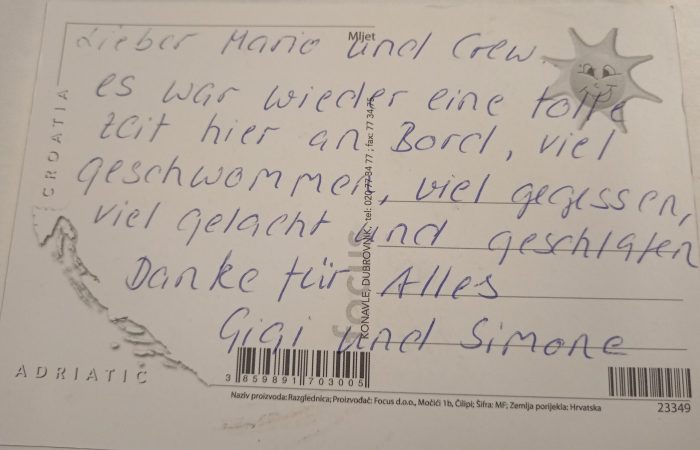 Mljet
Lieber Mario und Crew,
es war wieder eine tolle
Zeit hier an Bord, viel
geschwommen, viel gegessen,
viel gelacht und geschlafen
Danke für Alles
Gigi und Simone
CROATIA
ADRIATIC
focus
KONAVLE, DUBROVNIK, tel: 020 77 34 77 ; fax: 77 34 75
3 859891 703005
Naziv proizvoda: Razglednica; Proizvođač: Focus d.o.o., Močići 1b, Čilipi; Šifra: MF; Zemlja porijekla: Hrvatska
23349